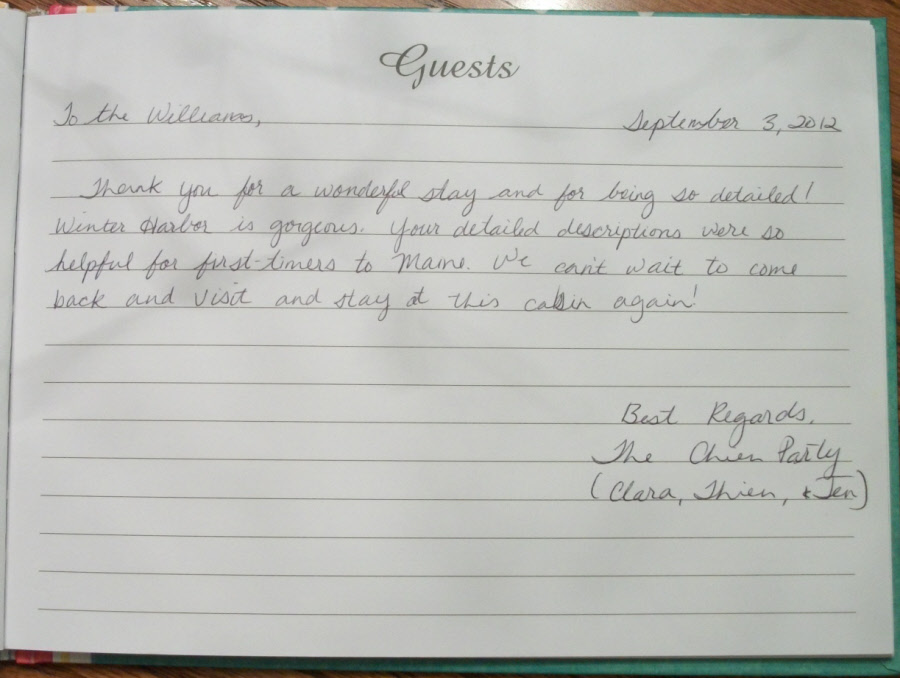 Guests
To the Williams,
September 3, 2012
Thank you for a wonderful stay and for being so detailed!
Winter Harbor is gorgeous. Your detailed descriptions were so
helpful for first-timers to Maine. We can't wait to come
back and visit and stay at this cabin again!
Best Regards,
The Chien Party
(Clara, Thien, & Jen)